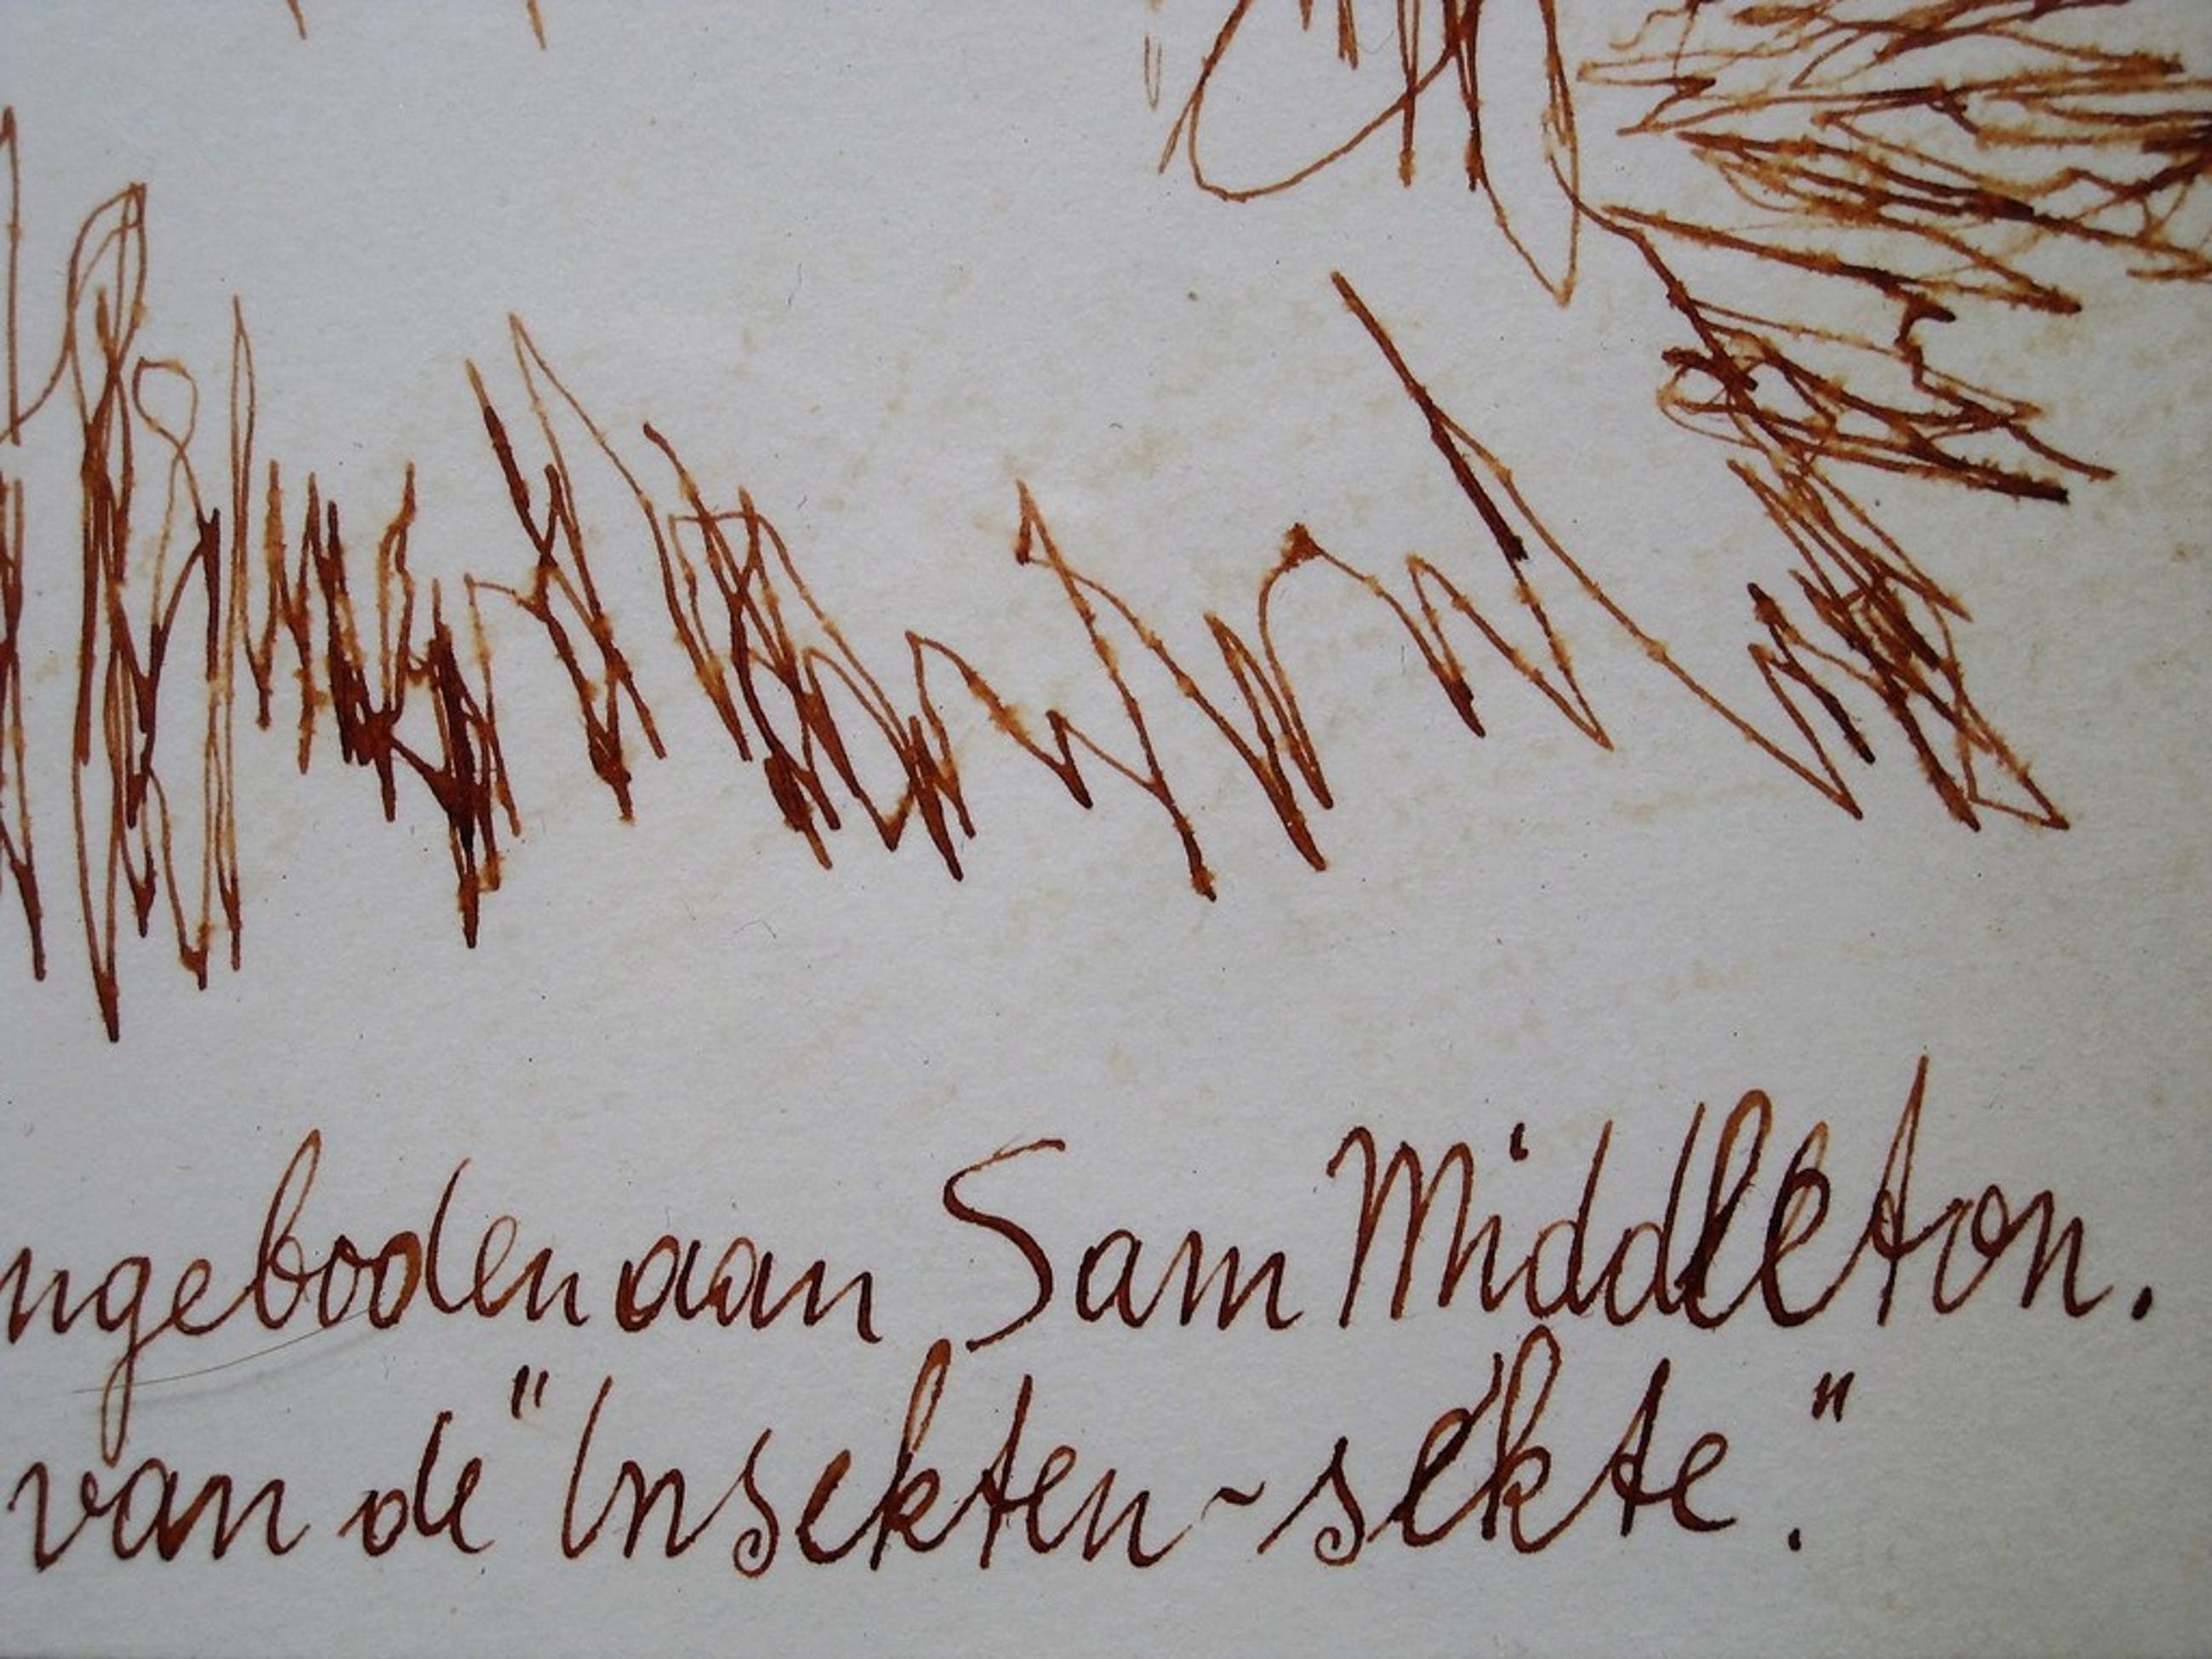 ngeboden aan Sam Middleton.
van de "Insekten-sekte."